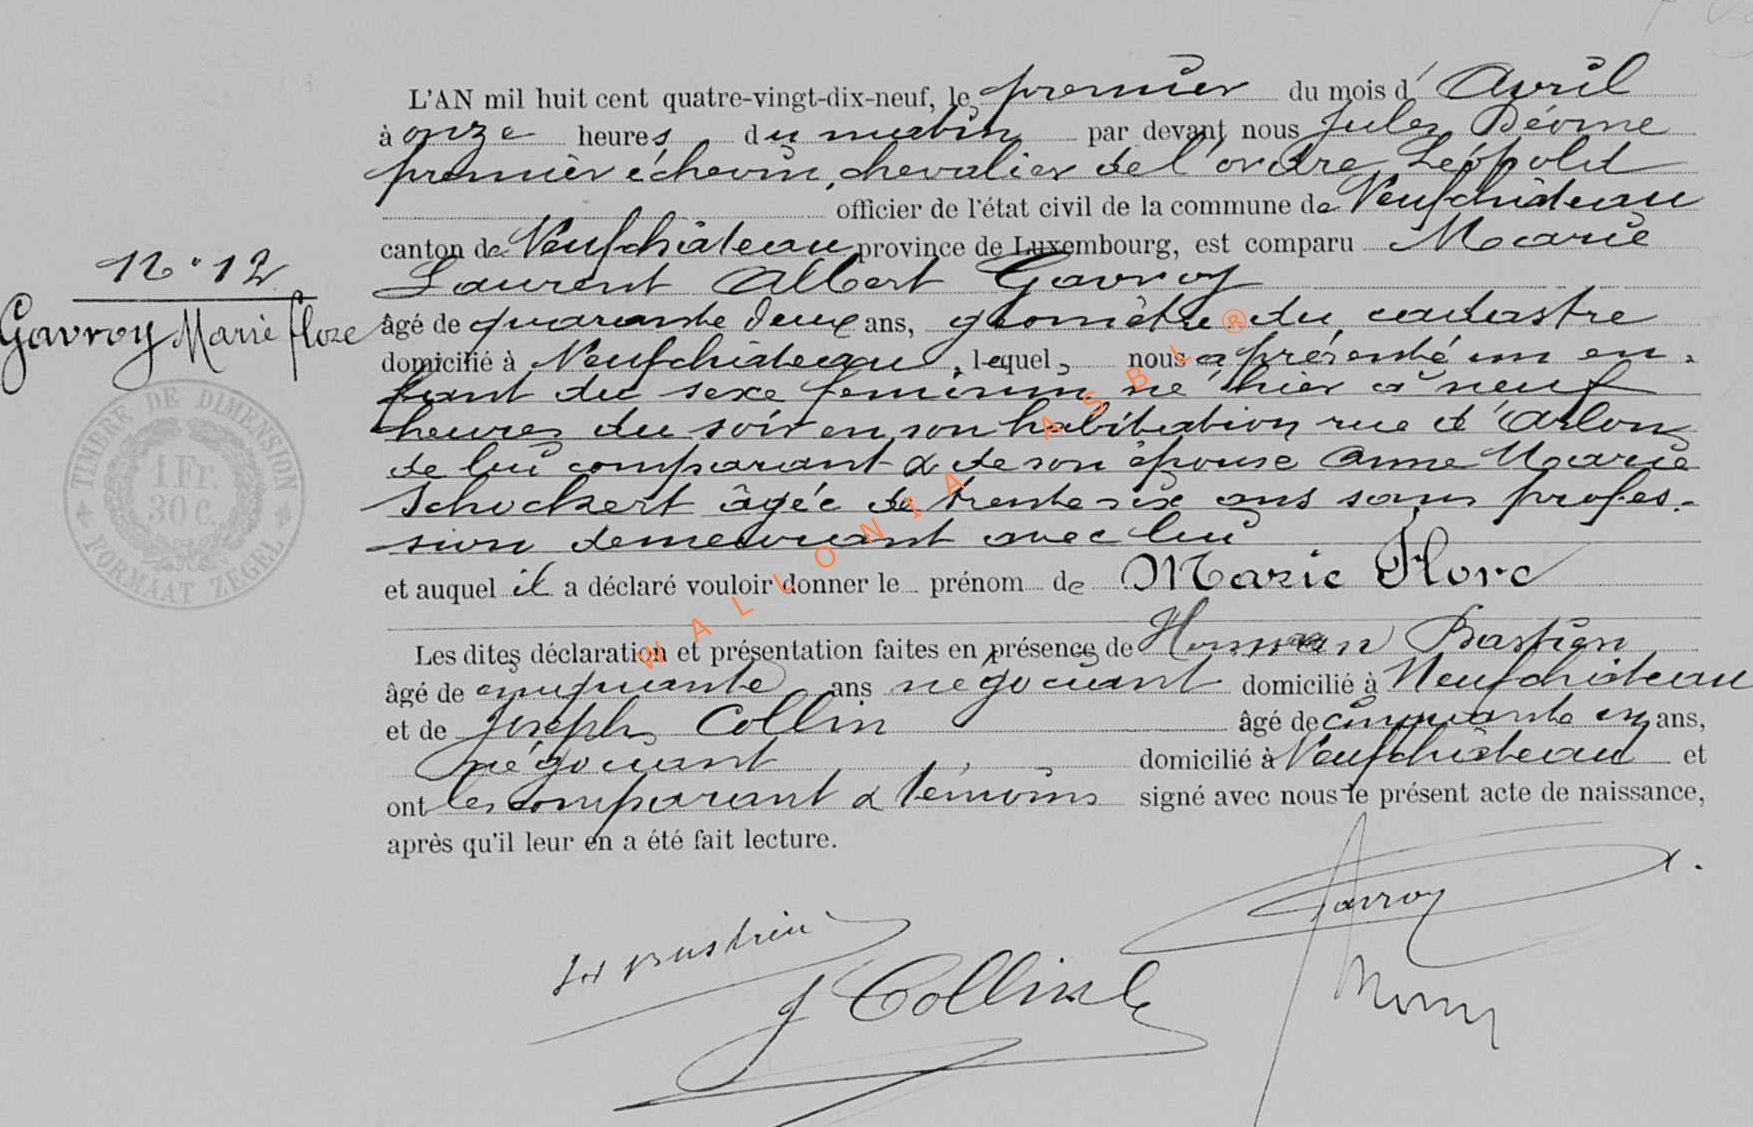 L'AN mil huit cent quatre-vingt-dix-neuf, le premier du mois d'Avril
à onze heures du matin par devant nous Jules
premier échevin, chevalier de l'ordre Léopold
officier de l'état civil de la commune de Neufchâteau
canton de Neufchâteau province de Luxembourg, est comparu Marie
Laurent Albert Gavroy
âgé de quarante deux ans, géomètre du cadastre
domicilié à Neufchâteau, lequel nous a présenté un en-
fant du sexe féminin, né hier à neuf
heures du soir en son habitation rue d'Arlon
de lui comparant & de son épouse Anne Marie
Schockert âgée de trente six ans sans profes-
sion demeurant avec lui
et auquel il a déclaré vouloir donner le prénom de Marie Flore
Les dites déclaration et présentation faites en présence de Bastien
âgé de cinquante ans négociant domicilié à Neufchâteau
et de Joseph Collin âgé de cinquante un ans,
négociant domicilié à Neufchâteau et
ont les comparant & témoins signé avec nous le présent acte de naissance,
après qu'il leur en a été fait lecture.
N° 12
Gavroy Marie Flore
TIMBRE DE DIMENSION
1 Fr.
30 C.
FORMAAT ZEGEL
WALLONIA ASBL ®
Gavroy
Bastien
J Collin